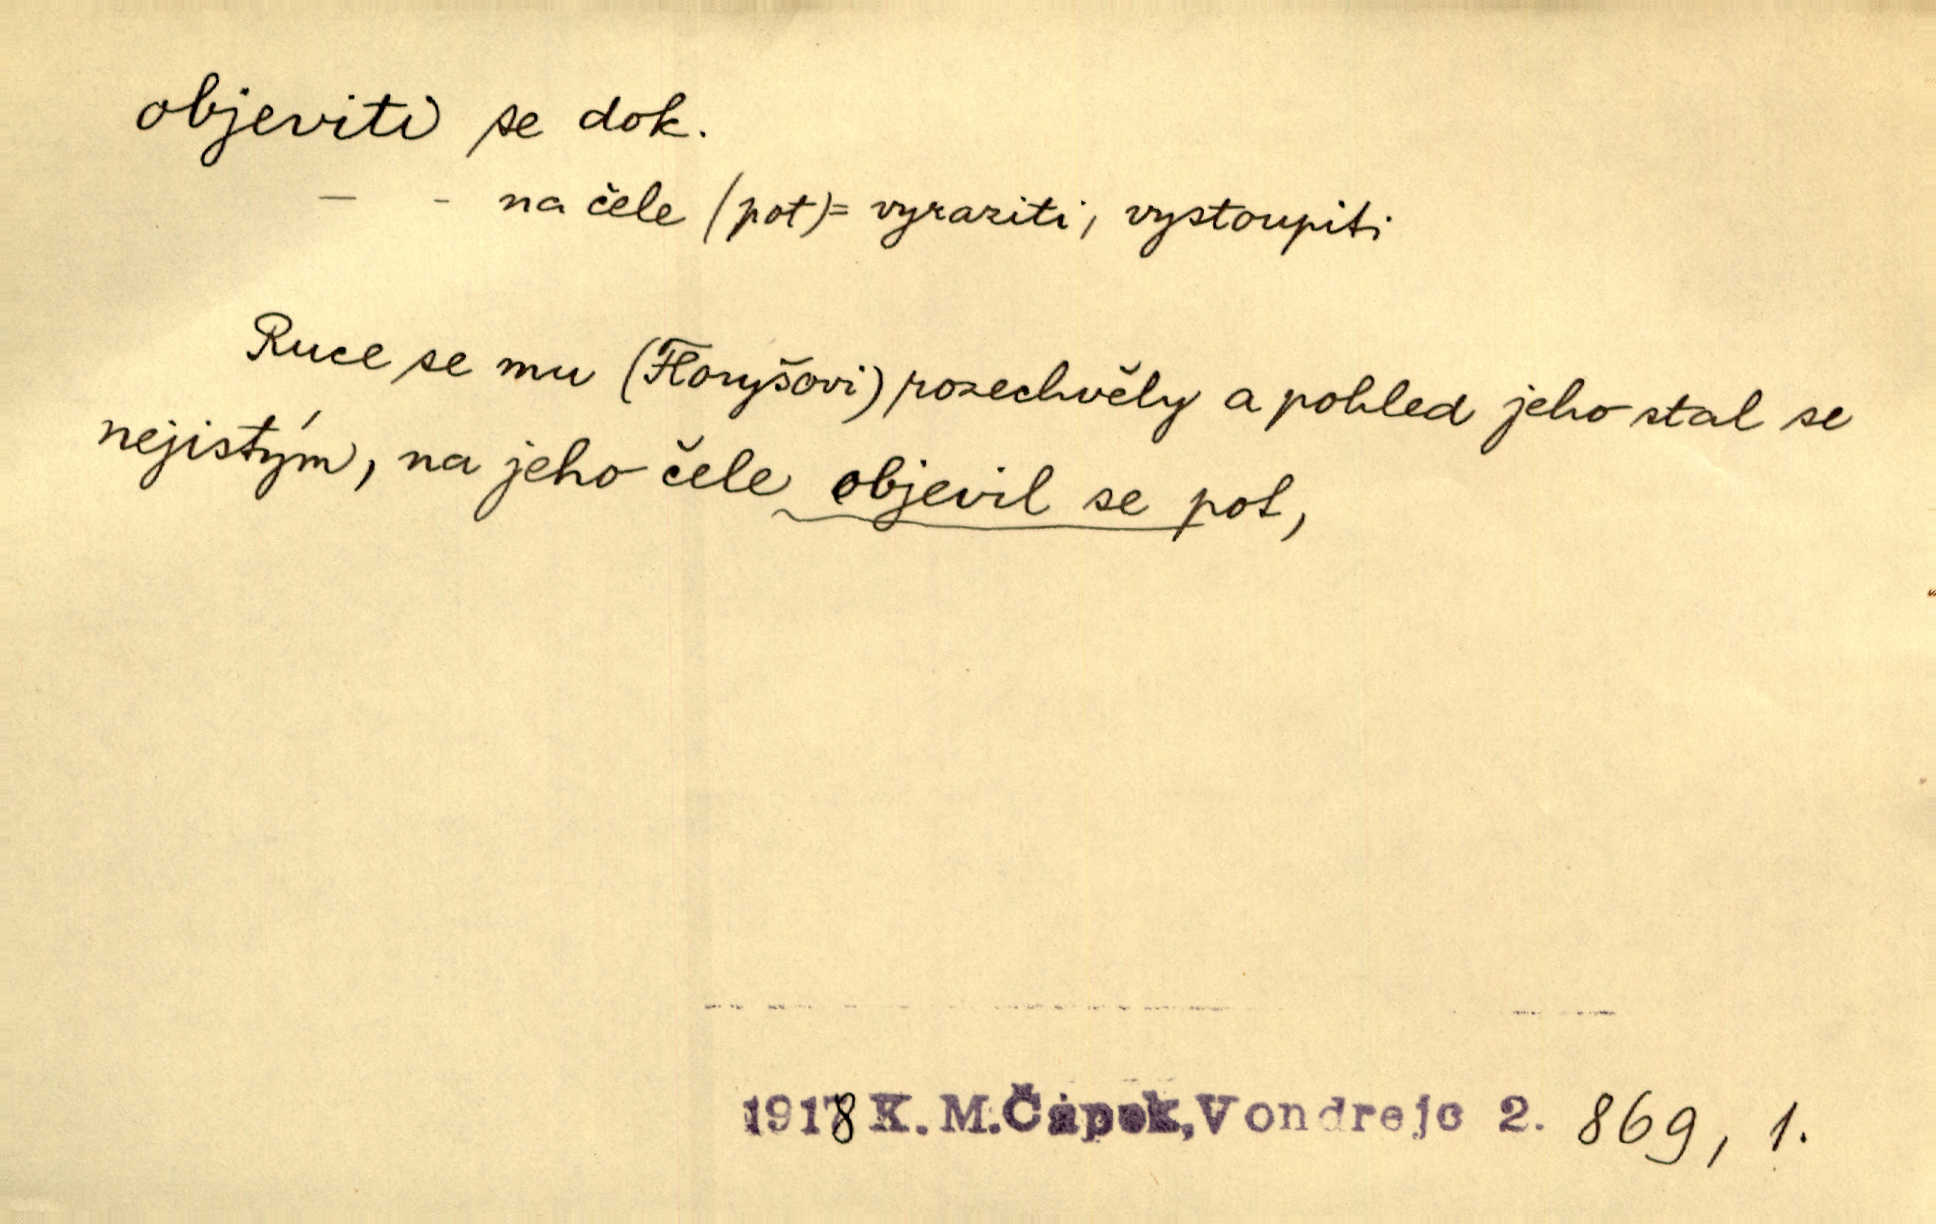 objeviti se dok.
— - na čele (pot) = vyraziti, vystoupiti
Ruce se mu (Floryšovi) rozechvěly a pohled jeho stal se
nejistým, na jeho čele objevil se pot,
1918 K. M. Čapek, Vondrejc 2. 869, 1.